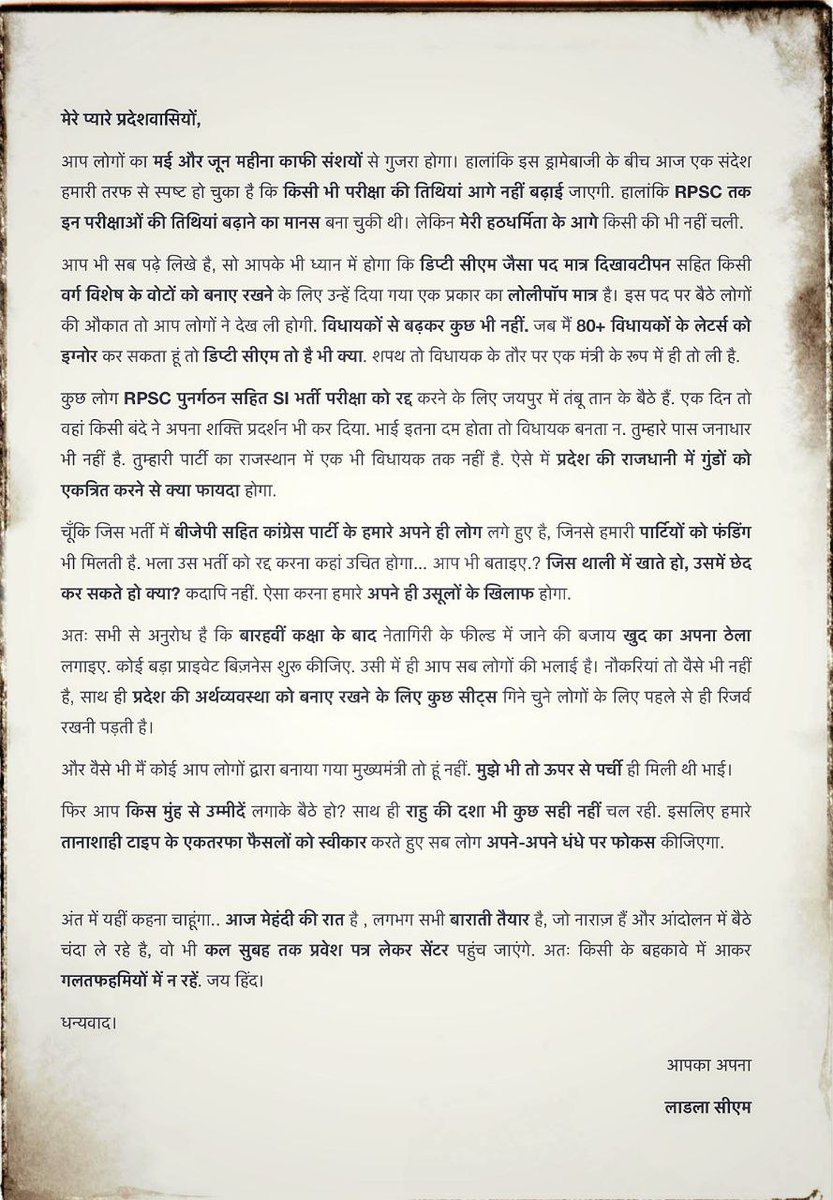 मेरे प्यारे प्रदेशवासियों,
आप लोगों का मई और जून महीना काफी संशयों से गुजरा होगा। हालांकि इस ड्रामेबाजी के बीच आज एक संदेश
हमारी तरफ से स्पष्ट हो चुका है कि किसी भी परीक्षा की तिथियां आगे नहीं बढ़ाई जाएगी. हालांकि RPSC तक
इन परीक्षाओं की तिथियां बढ़ाने का मानस बना चुकी थी। लेकिन मेरी हठधर्मिता के आगे किसी की भी नहीं चली.
आप भी सब पढ़े लिखे है, सो आपके भी ध्यान में होगा कि डिप्टी सीएम जैसा पद मात्र दिखावटीपन सहित किसी
वर्ग विशेष के वोटों को बनाए रखने के लिए उन्हें दिया गया एक प्रकार का लोलीपॉप मात्र है। इस पद पर बैठे लोगों
की औकात तो आप लोगों ने देख ली होगी. विधायकों से बढ़कर कुछ भी नहीं. जब मैं 80+ विधायकों के लेटर्स को
इग्नोर कर सकता हूं तो डिप्टी सीएम तो है भी क्या. शपथ तो विधायक के तौर पर एक मंत्री के रूप में ही तो ली है.
कुछ लोग RPSC पुनर्गठन सहित SI भर्ती परीक्षा को रद्द करने के लिए जयपुर में तंबू तान के बैठे हैं. एक दिन तो
वहां किसी बंदे ने अपना शक्ति प्रदर्शन भी कर दिया. भाई इतना दम होता तो विधायक बनता न. तुम्हारे पास जनाधार
भी नहीं है. तुम्हारी पार्टी का राजस्थान में एक भी विधायक तक नहीं है. ऐसे में प्रदेश की राजधानी में गुंडों को
एकत्रित करने से क्या फायदा होगा.
चूँकि जिस भर्ती में बीजेपी सहित कांग्रेस पार्टी के हमारे अपने ही लोग लगे हुए है, जिनसे हमारी पार्टियों को फंडिंग
भी मिलती है. भला उस भर्ती को रद्द करना कहां उचित होगा... आप भी बताइए.? जिस थाली में खाते हो, उसमें छेद
कर सकते हो क्या? कदापि नहीं. ऐसा करना हमारे अपने ही उसूलों के खिलाफ होगा.
अतः सभी से अनुरोध है कि बारहवीं कक्षा के बाद नेतागिरी के फील्ड में जाने की बजाय खुद का अपना ठेला
लगाइए. कोई बड़ा प्राइवेट बिज़नेस शुरू कीजिए. उसी में ही आप सब लोगों की भलाई है। नौकरियां तो वैसे भी नहीं
है, साथ ही प्रदेश की अर्थव्यवस्था को बनाए रखने के लिए कुछ सीट्स गिने चुने लोगों के लिए पहले से ही रिजर्व
रखनी पड़ती है।
और वैसे भी मैं कोई आप लोगों द्वारा बनाया गया मुख्यमंत्री तो हूं नहीं. मुझे भी तो ऊपर से पर्ची ही मिली थी भाई।
फिर आप किस मुंह से उम्मीदें लगाके बैठे हो? साथ ही राहु की दशा भी कुछ सही नहीं चल रही. इसलिए हमारे
तानाशाही टाइप के एकतरफा फैसलों को स्वीकार करते हुए सब लोग अपने-अपने धंधे पर फोकस कीजिएगा.
अंत में यहीं कहना चाहूंगा.. आज मेहंदी की रात है , लगभग सभी बाराती तैयार है, जो नाराज़ हैं और आंदोलन में बैठे
चंदा ले रहे है, वो भी कल सुबह तक प्रवेश पत्र लेकर सेंटर पहुंच जाएंगे. अतः किसी के बहकावे में आकर
गलतफहमियों में न रहें. जय हिंद।
धन्यवाद।
आपका अपना
लाडला सीएम